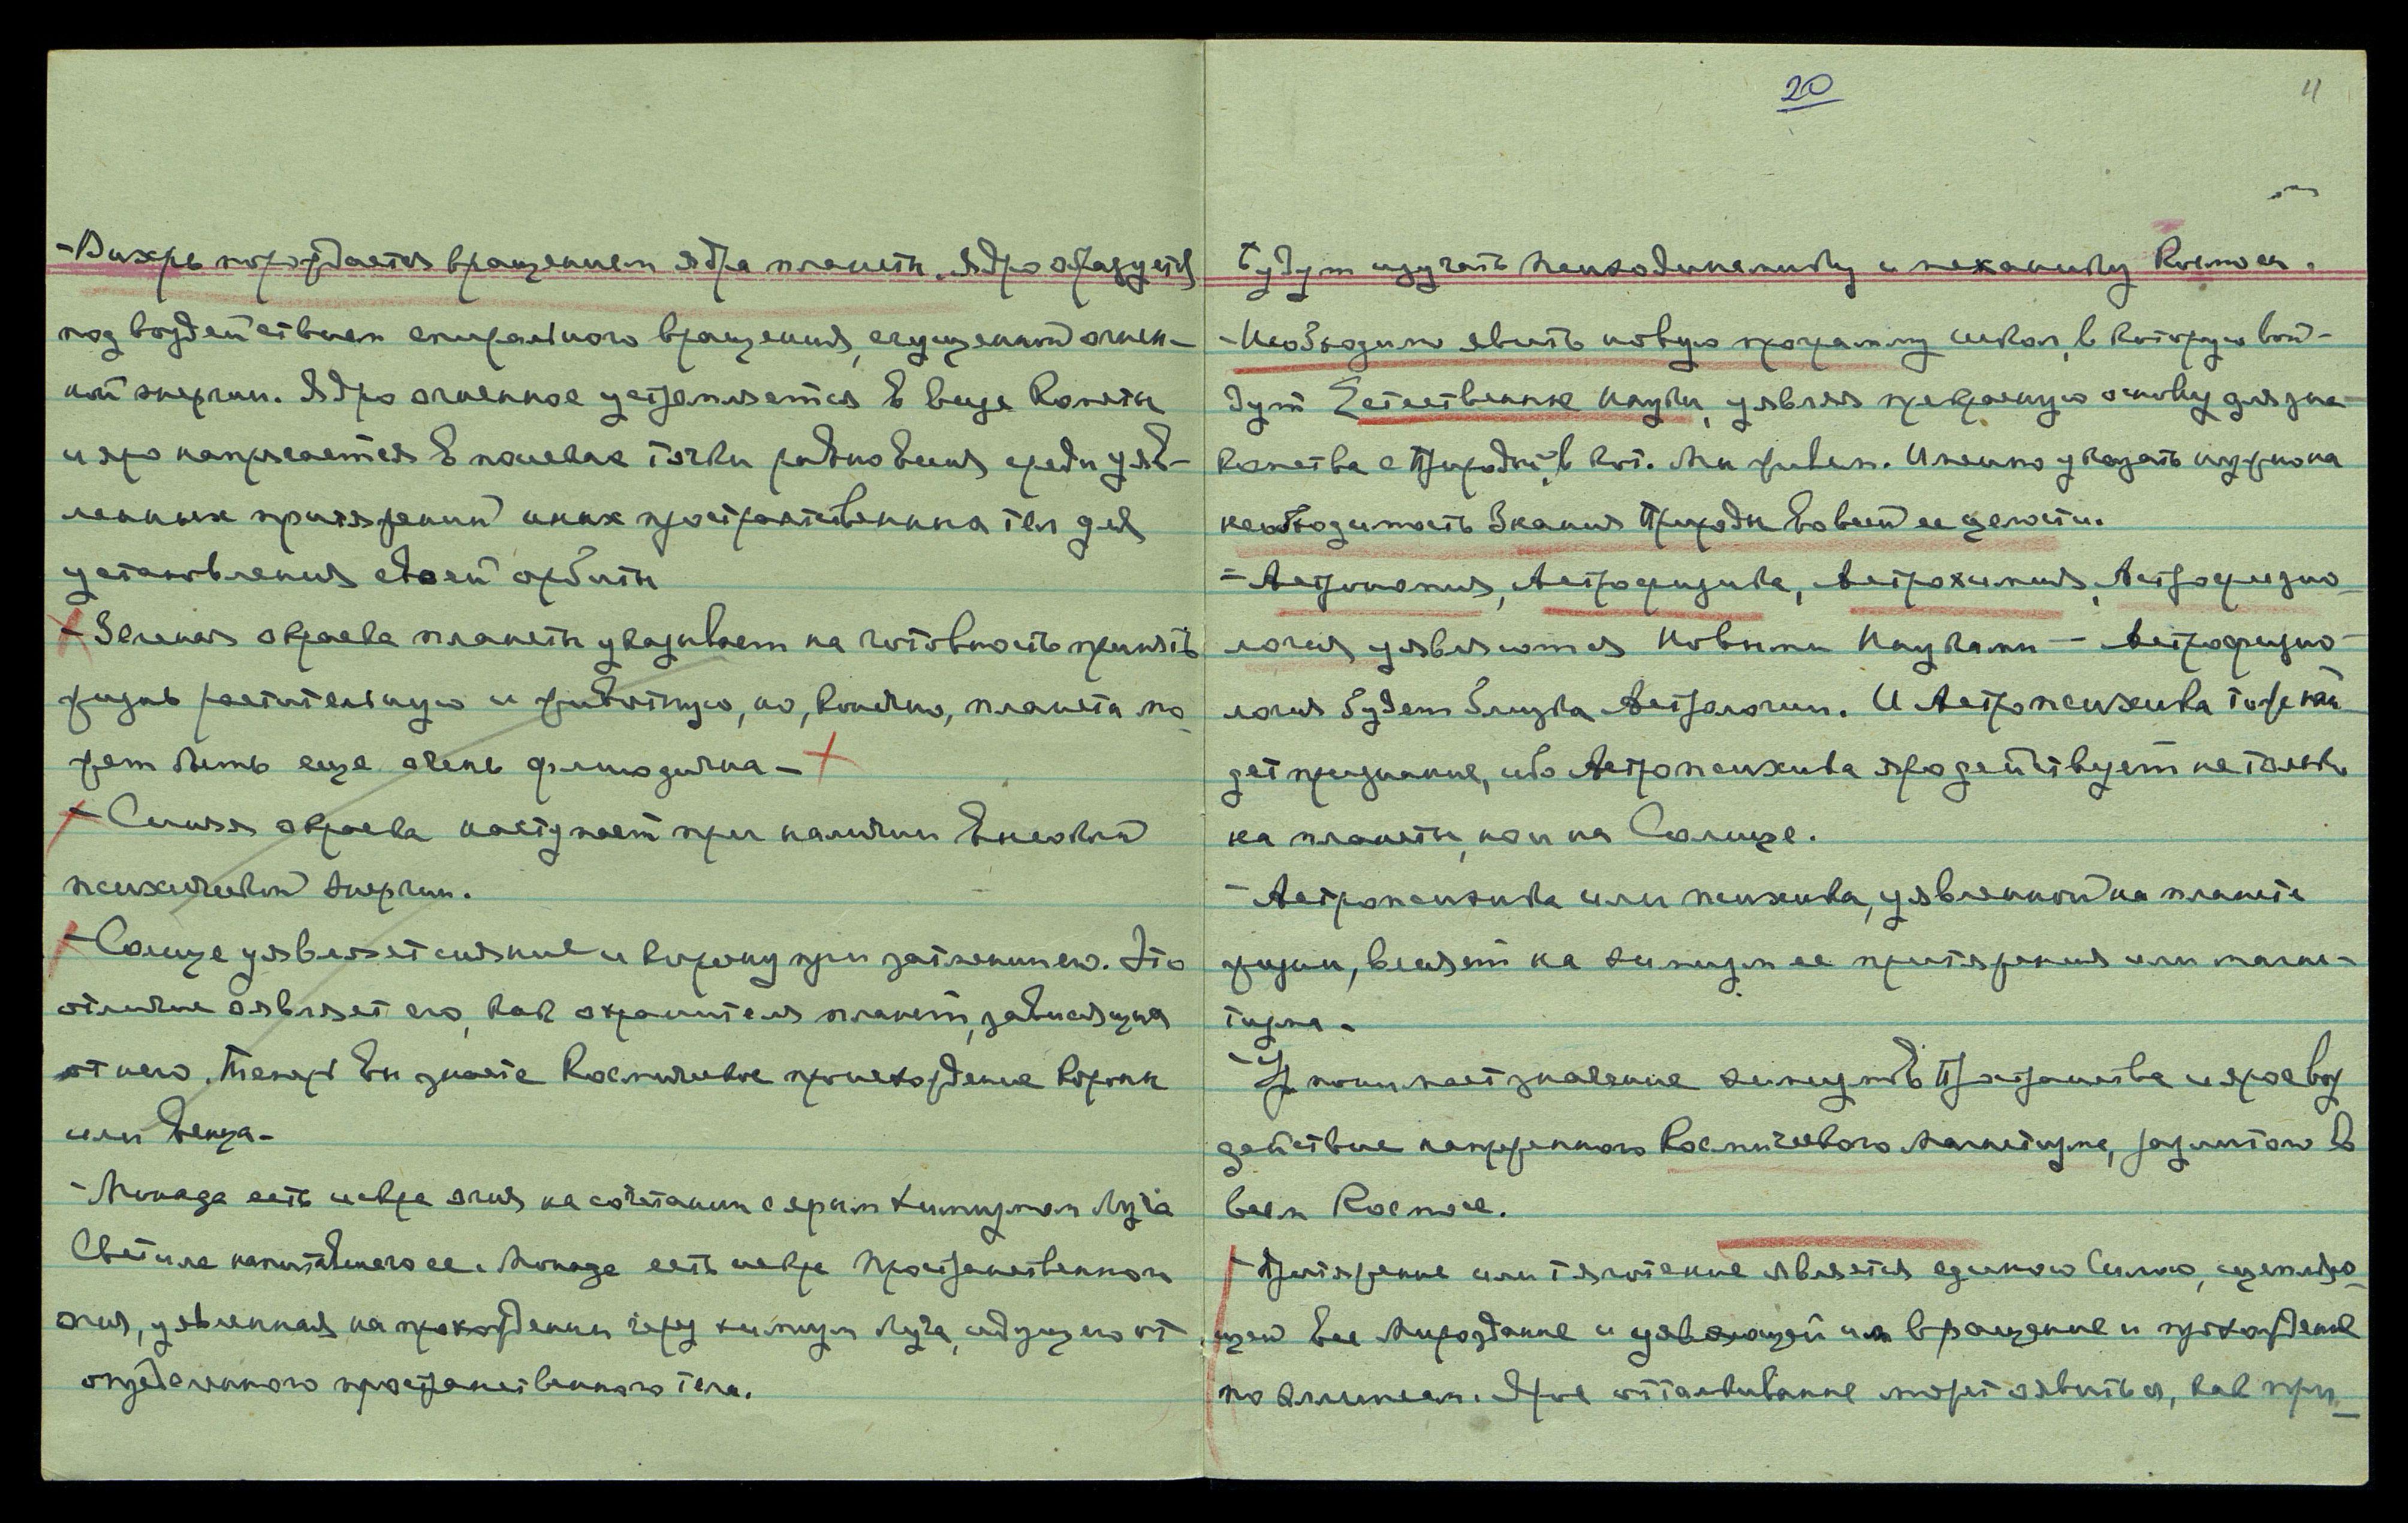 - Вихрь порождается вращением ядра планеты. Ядро образуется
под воздействием спирального вращения, сгущенной огнен-
ной энергии. Ядро огненное устремляется в виде Кометы
и яро напрягается в поисках точки равновесия среди уяв-
ленных притяжений иных пространственных тел для
установления своей орбиты
- Зеленая окраска планеты указывает на готовность принять
жизнь растительную и животную, но, конечно, планета мо-
жет быть еще очень флюидична -
- Синяя окраска наступает при наличии высокой
психической энергии.
- Солнце уявляет сияние и корону при затмении его. Это
отличие оявляет его, как охранителя планет, зависящих
от него. Теперь вы знаете Космическое происхождение Короны
или Венца -
- Монада есть искра огня на сочетании с ярым химизмом Луча
Светила напитавшего ее. Монада есть искра Пространственного
огня, уявленная на прохождении через химизм Луча, идущего от
определенного пространственного тела.
20
11
будут изучать психодинамику и механику Космоса.
- Необходимо явить новую программу школ, в которую вой-
дут Естественные Науки, уявляя прекрасную основу для зна-
комства с Природой, в кот. мы живем. Именно указать нужно на
необходимость Знания Природы во всей ее целости.
= Астрономия, Астрофизика, Астрохимия, Астрофизио-
логия уявляются Новыми Науками — Астрофизио-
логия будет близка Астрологии. И Астропсихика тоже най-
дет признание, ибо Астропсихика яро действует не только
на планеты, но и на Солнце.
- Астропсихика или психика, уявленной на планете
жизни, влияет на химизм ее притяжения или магне-
тизма.
- Ур понимает значение химизмов Пространства и ярое воз
действие напряженного Космического Магнетизма, разлитого в
всем Космосе.
- Притяжение или тяготение является единою Силою, сцепляю-
щей все Мироздание и уявляющей их вращение и прохождение
по эллипсам. Ярое отталкивание может оявиться, как при-